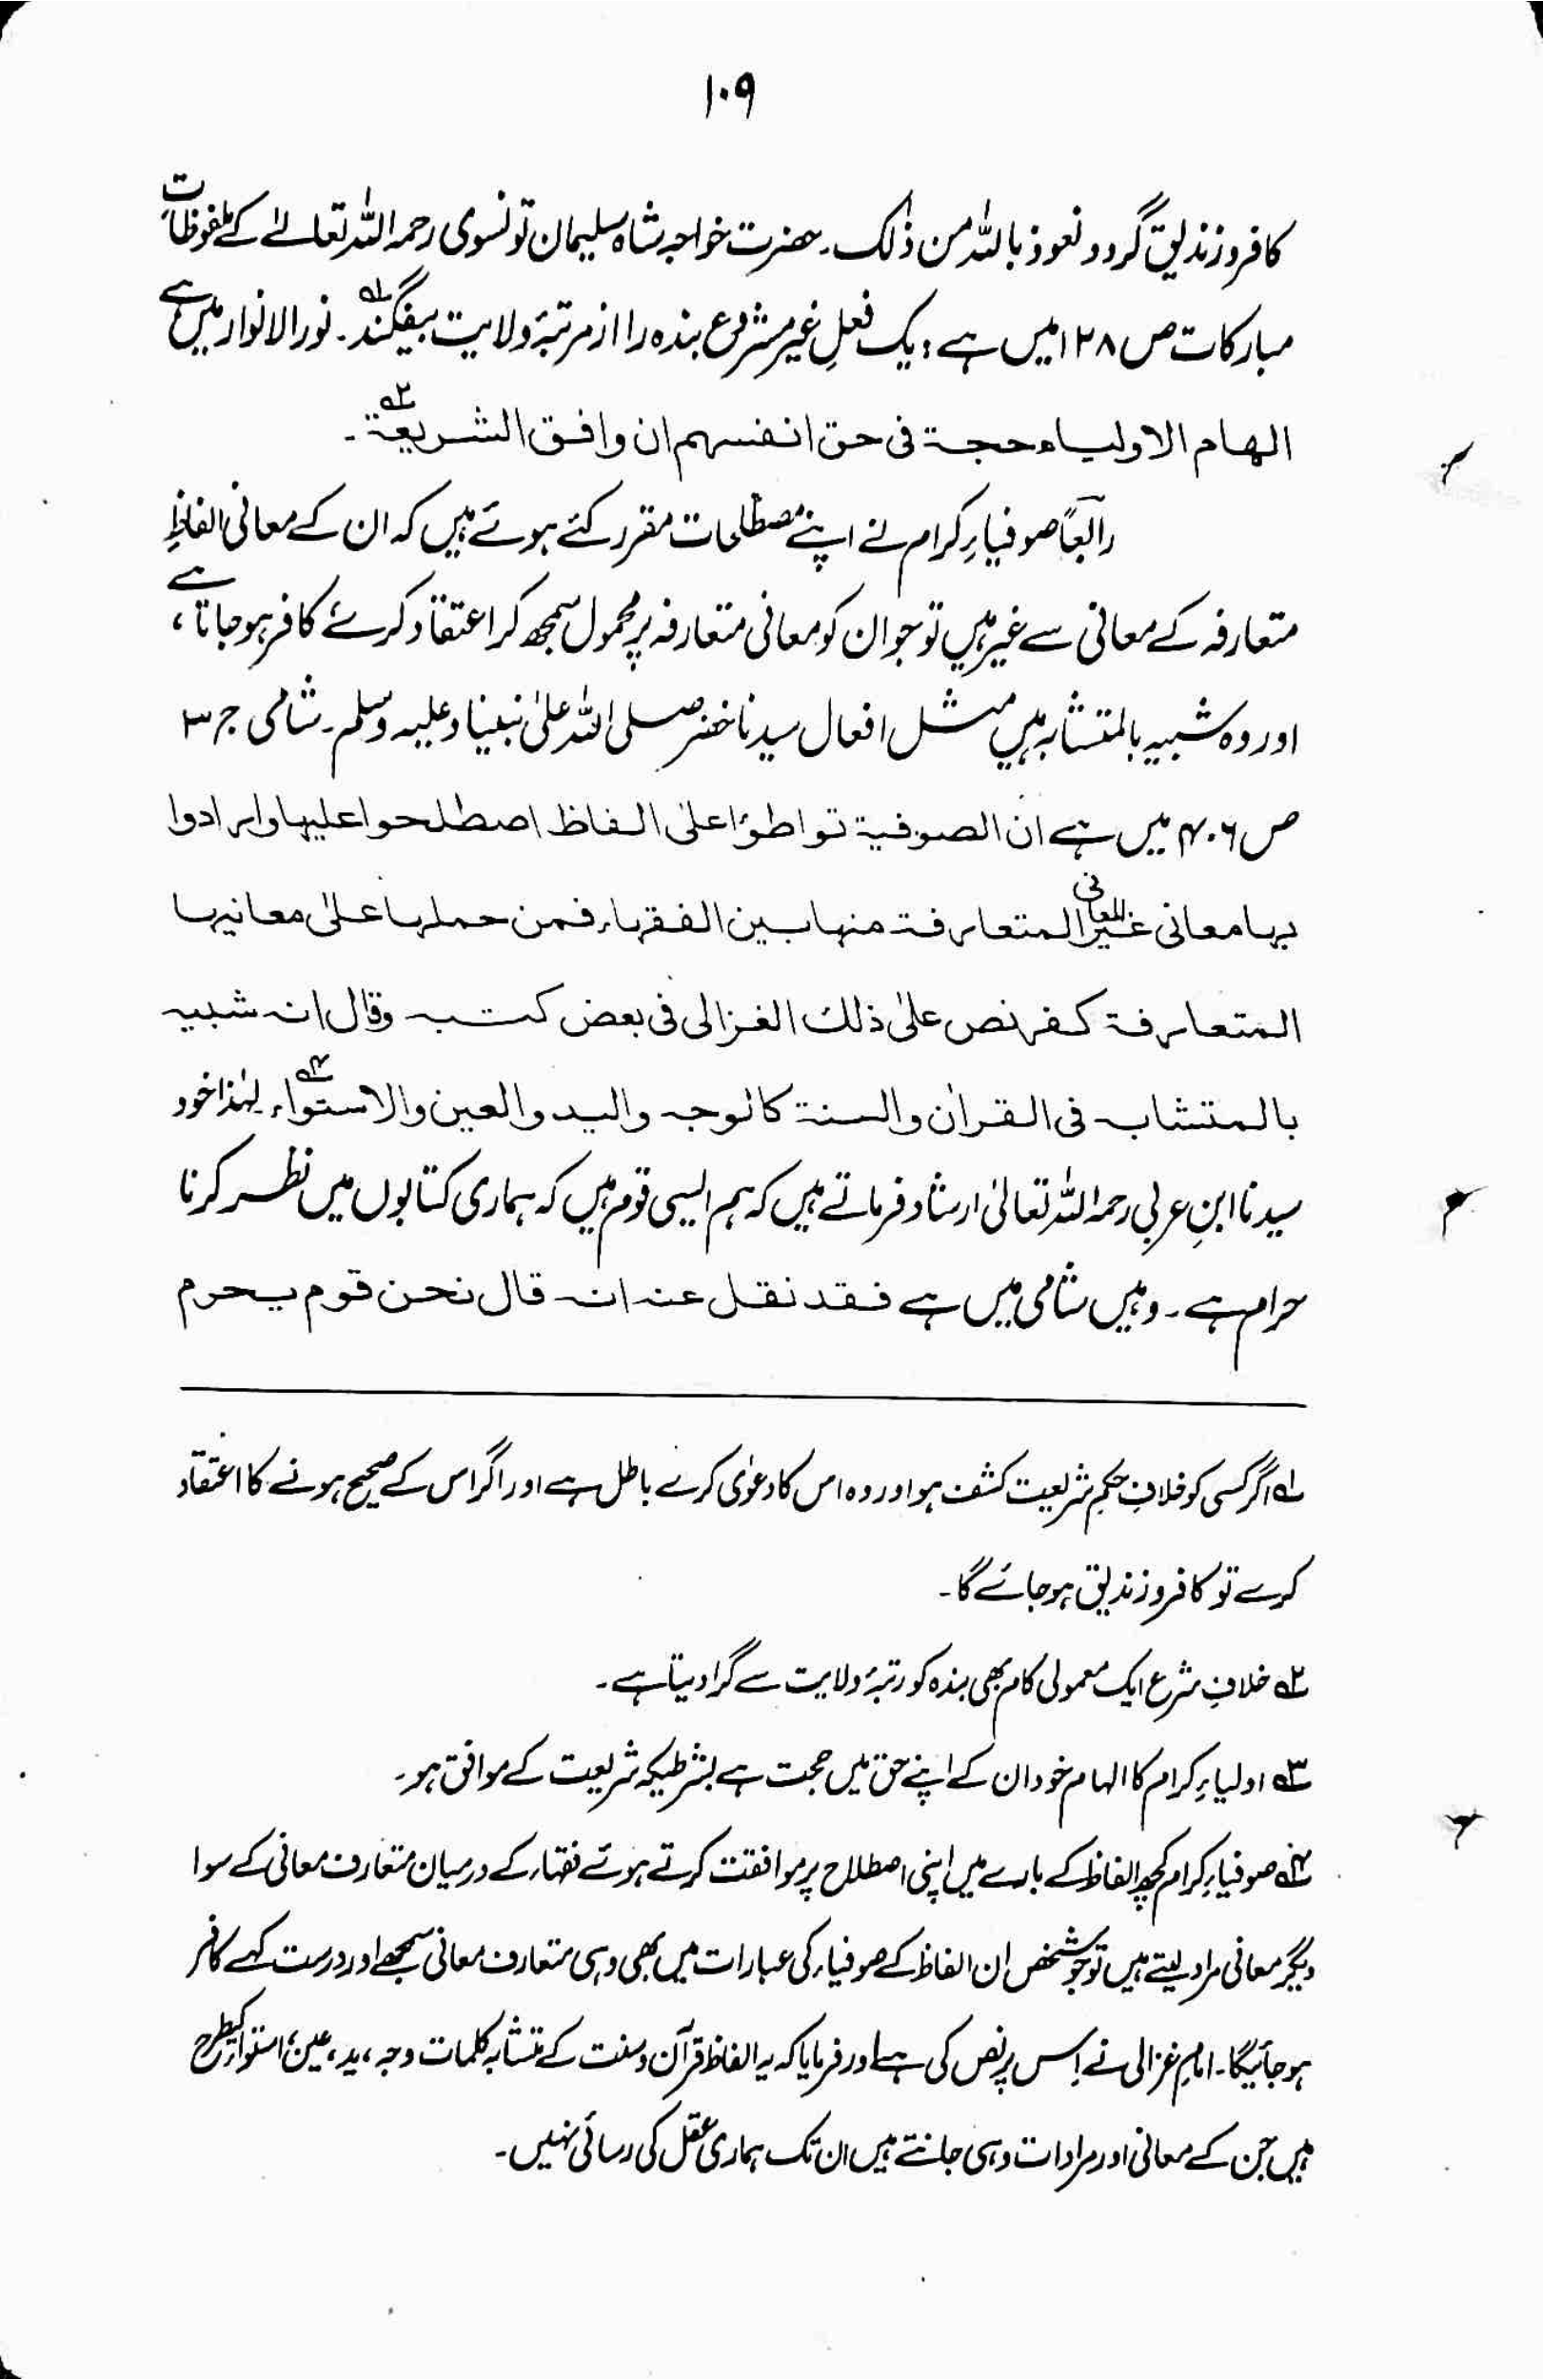 ۱۰۹
کافر و زندیق گردد و نعوذ باللہ من ذٰلک۔ حضرت خواجہ شاہ سلیمان تونسوی رحمہ اللہ تعالےٰ کے ملفوظات
مبارکات ص ۱۲۸ میں ہے: یک فعلِ غیر مشروع بندہ را از مرتبۂ ولایت بیفگند۔ نور الانوار میں ہے
الہام الاولیاء حجۃ فی حق انفسہم ان وافق الشریعۃ۔
رابعًا صوفیاءِ کرام نے اپنے مصطلحات مقرر کئے ہوئے ہیں کہ ان کے معانی الفاظِ
متعارفہ کے معانی سے غیر ہیں تو جو ان کو معانی متعارفہ پر محمول سمجھ کر اعتقاد کرے کافر ہو جاتا ہے،
اور وہ شبیہ بالمتشابہ ہیں مثل افعال سیدنا خضر صلی اللہ علیٰ نبینا وعلیہ وسلم۔ شامی ج ۳
ص ۴۰۶ میں ہے ان الصوفیۃ تواطؤا علیٰ الفاظ اصطلحوا علیہا وارادوا
بہا معانی غیر المعانی المتعارفۃ منہا بین الفقہاء فمن حملہا علیٰ معانیہا
المتعارفۃ کفر نص علیٰ ذلك الغزالی فی بعض کتبہ وقال انہ شبیہ
بالمتشابہ فی القراٰن والسنۃ کالوجہ والید والعین والاستواء۔ لہٰذا خود
سیدنا ابنِ عربی رحمہ اللہ تعالیٰ ارشاد فرماتے ہیں کہ ہم ایسی قوم ہیں کہ ہماری کتابوں میں نظر کرنا
حرام ہے۔ وہیں شامی میں ہے فقد نقل عنہ انہ قال نحن قوم یحرم
۱؎ اگر کسی کو خلافِ حکمِ شریعت کشف ہو اور وہ اس کا دعوٰی کرے باطل ہے اور اگر اس کے صحیح ہونے کا اعتقاد
کرے تو کافر و زندیق ہو جائے گا۔
۲؎ خلافِ شرع ایک معمولی کام بھی بندہ کو رتبۂ ولایت سے گرا دیتا ہے۔
۳؎ اولیاءِ کرام کا الہام خود ان کے اپنے حق میں حجت ہے بشرطیکہ شریعت کے موافق ہو۔
۴؎ صوفیاءِ کرام کچھ الفاظ کے بارے میں اپنی اصطلاح پر موافقت کرتے ہوئے فقہاء کے درمیان متعارف معانی کے سوا
دیگر معانی مراد لیتے ہیں تو جو شخص ان الفاظ کے صوفیاء کی عبارات میں بھی وہی متعارف معانی سمجھے اور درست کہے کافر
ہو جائیگا۔ امام غزالی نے اِس پر نص کی ہے اور فرمایا کہ یہ الفاظ قرآن و سنت کے متشابہ کلمات وجہ، ید، عین، استواء کیطرح
ہیں جن کے معانی اور مرادات وہی جانتے ہیں ان تک ہماری عقل کی رسائی نہیں۔